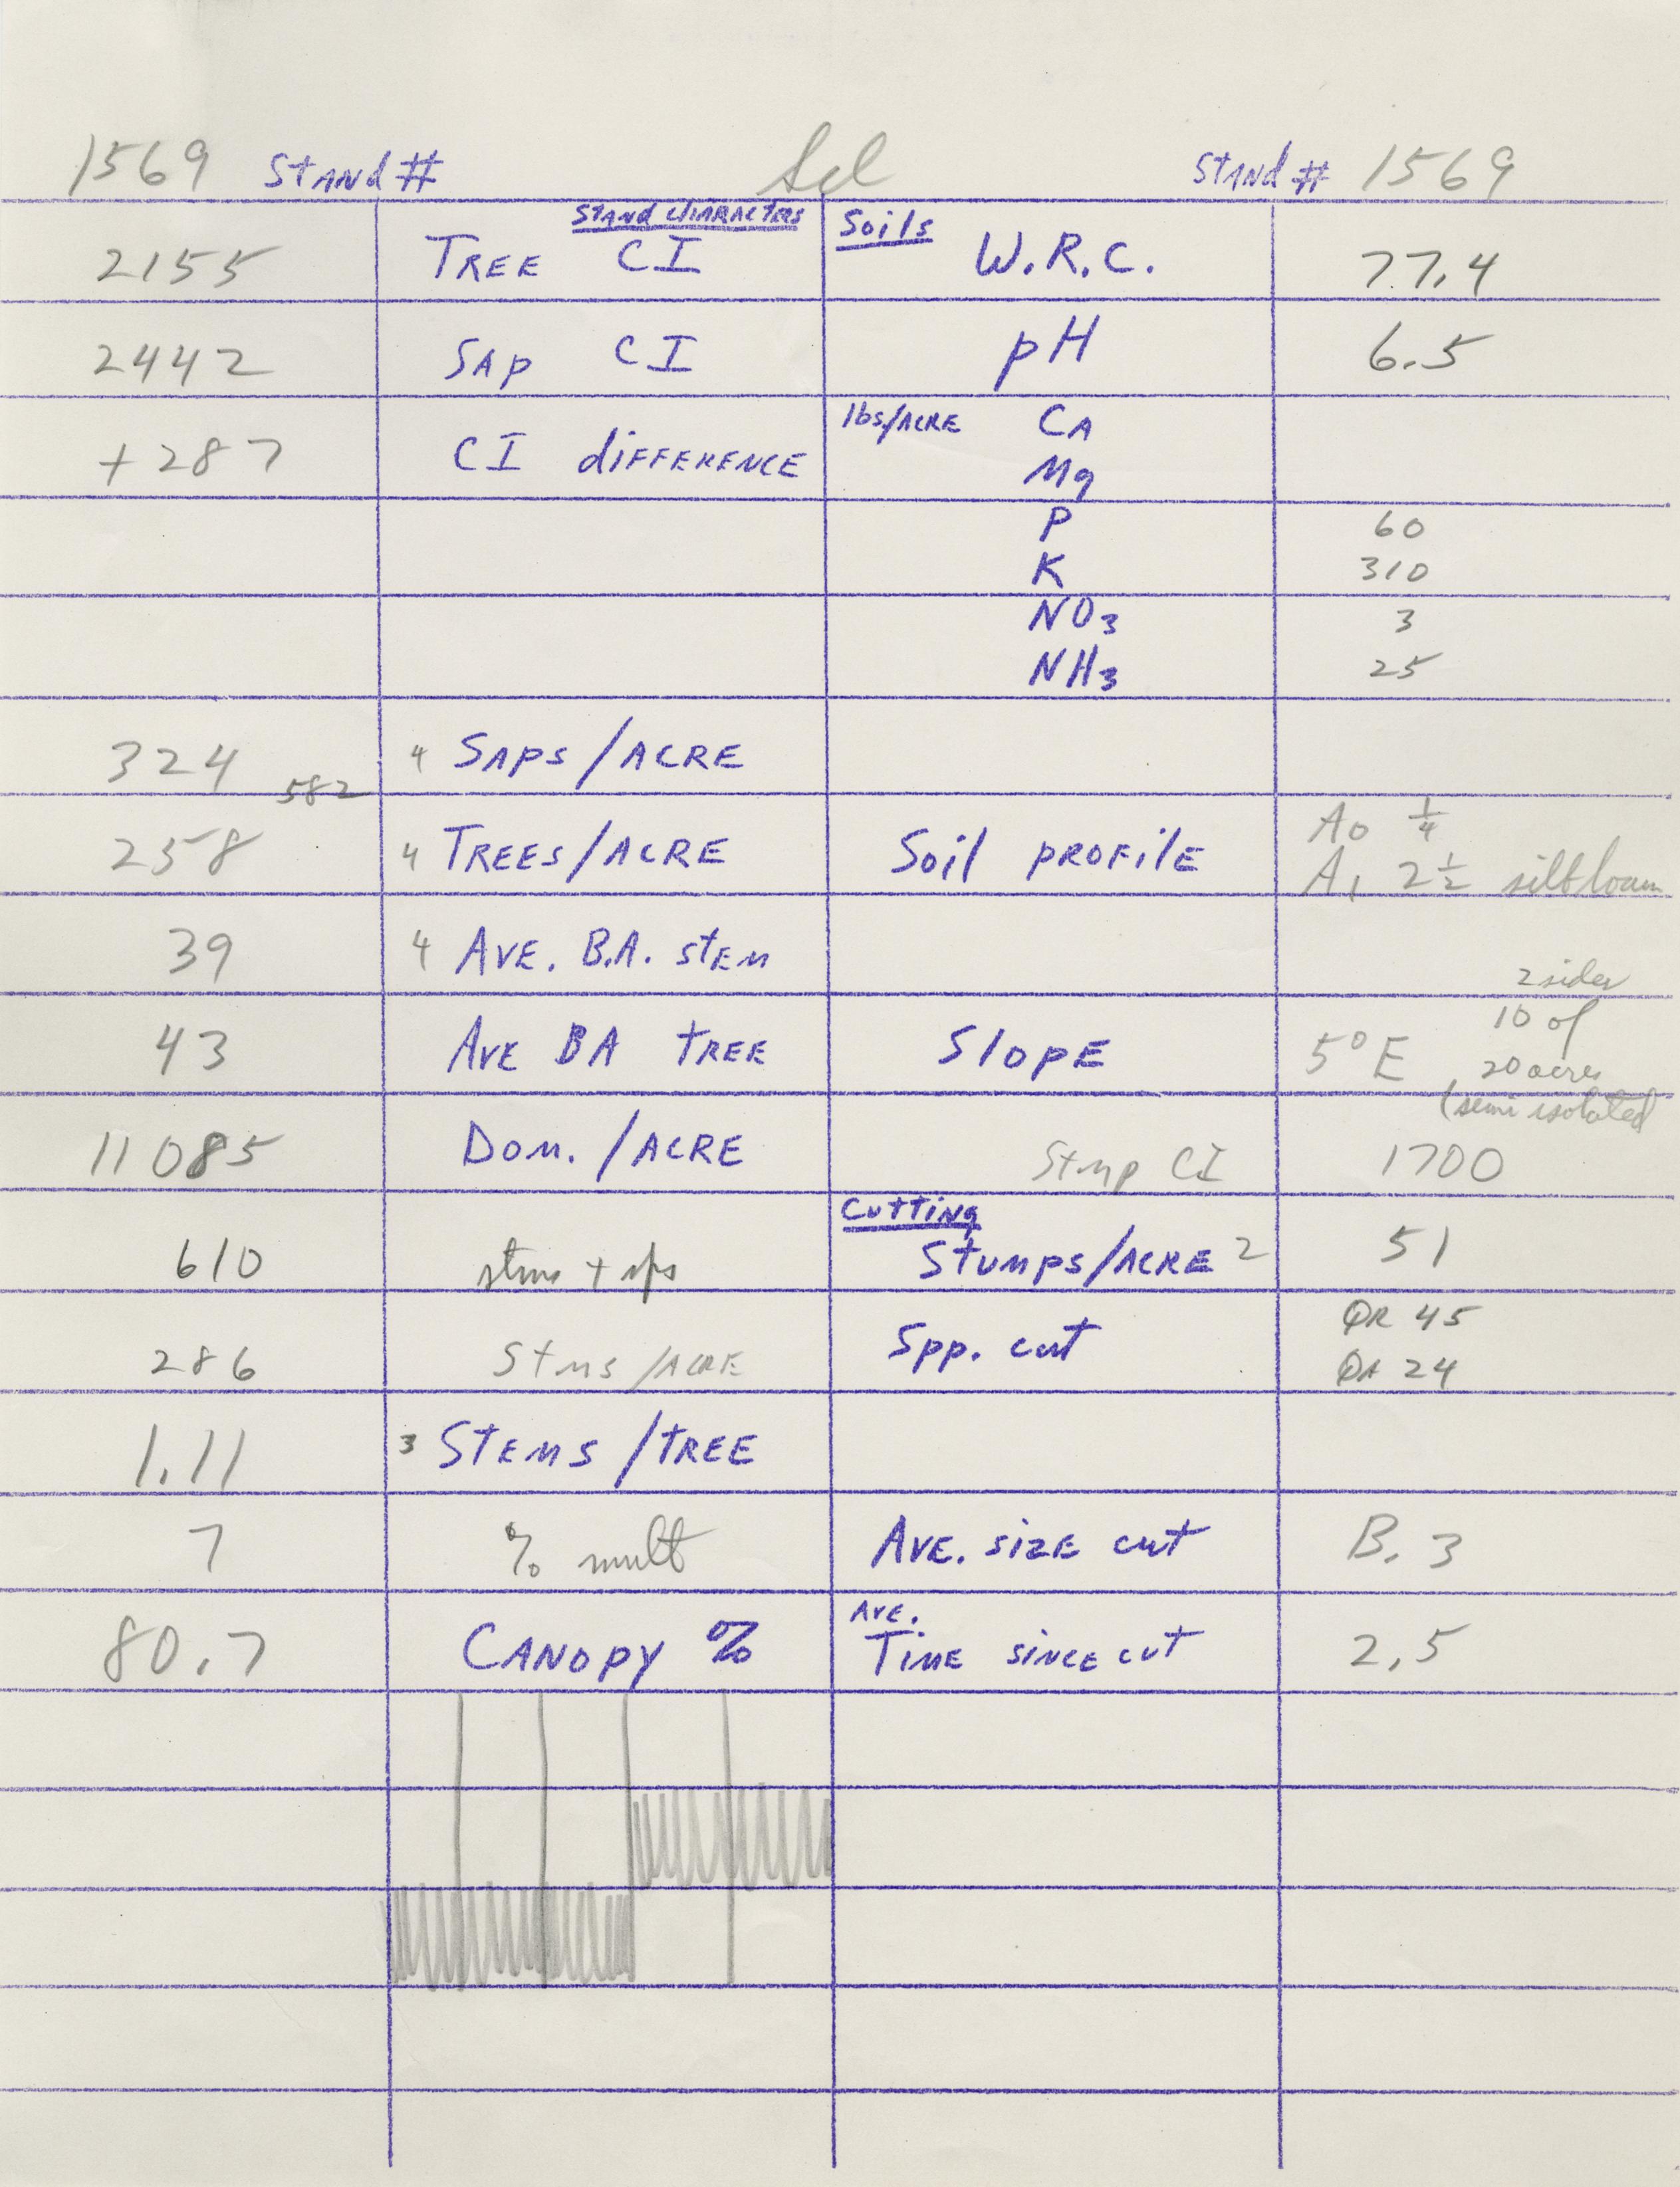 1569 Stand # Scl Stand # 1569
Stand characters Soils
2155 Tree CI W.R.C. 77.4
2442 Sap CI pH 6.5
+287 CI difference lbs/acre Ca
Mg
P 60
K 310
NO3 3
NH3 25
324 4 Saps/acre
582
258 4 Trees/acre Soil profile A0 1/4
A1 2 1/2 silt loam
39 4 Ave. B.A. stem
43 Ave BA tree Slope 5° E 2 sides
10 of
20 acres
(semi isolated
11085 Dom./acre Stmp CI 1700
Cutting
610 stms + sps Stumps/acre 2 51
286 Stms/acre Spp. cut QR 45
QA 24
1.11 3 Stems/tree
7 % mult Ave. size cut B. 3
80.7 Canopy % Ave.
Time since cut 2.5